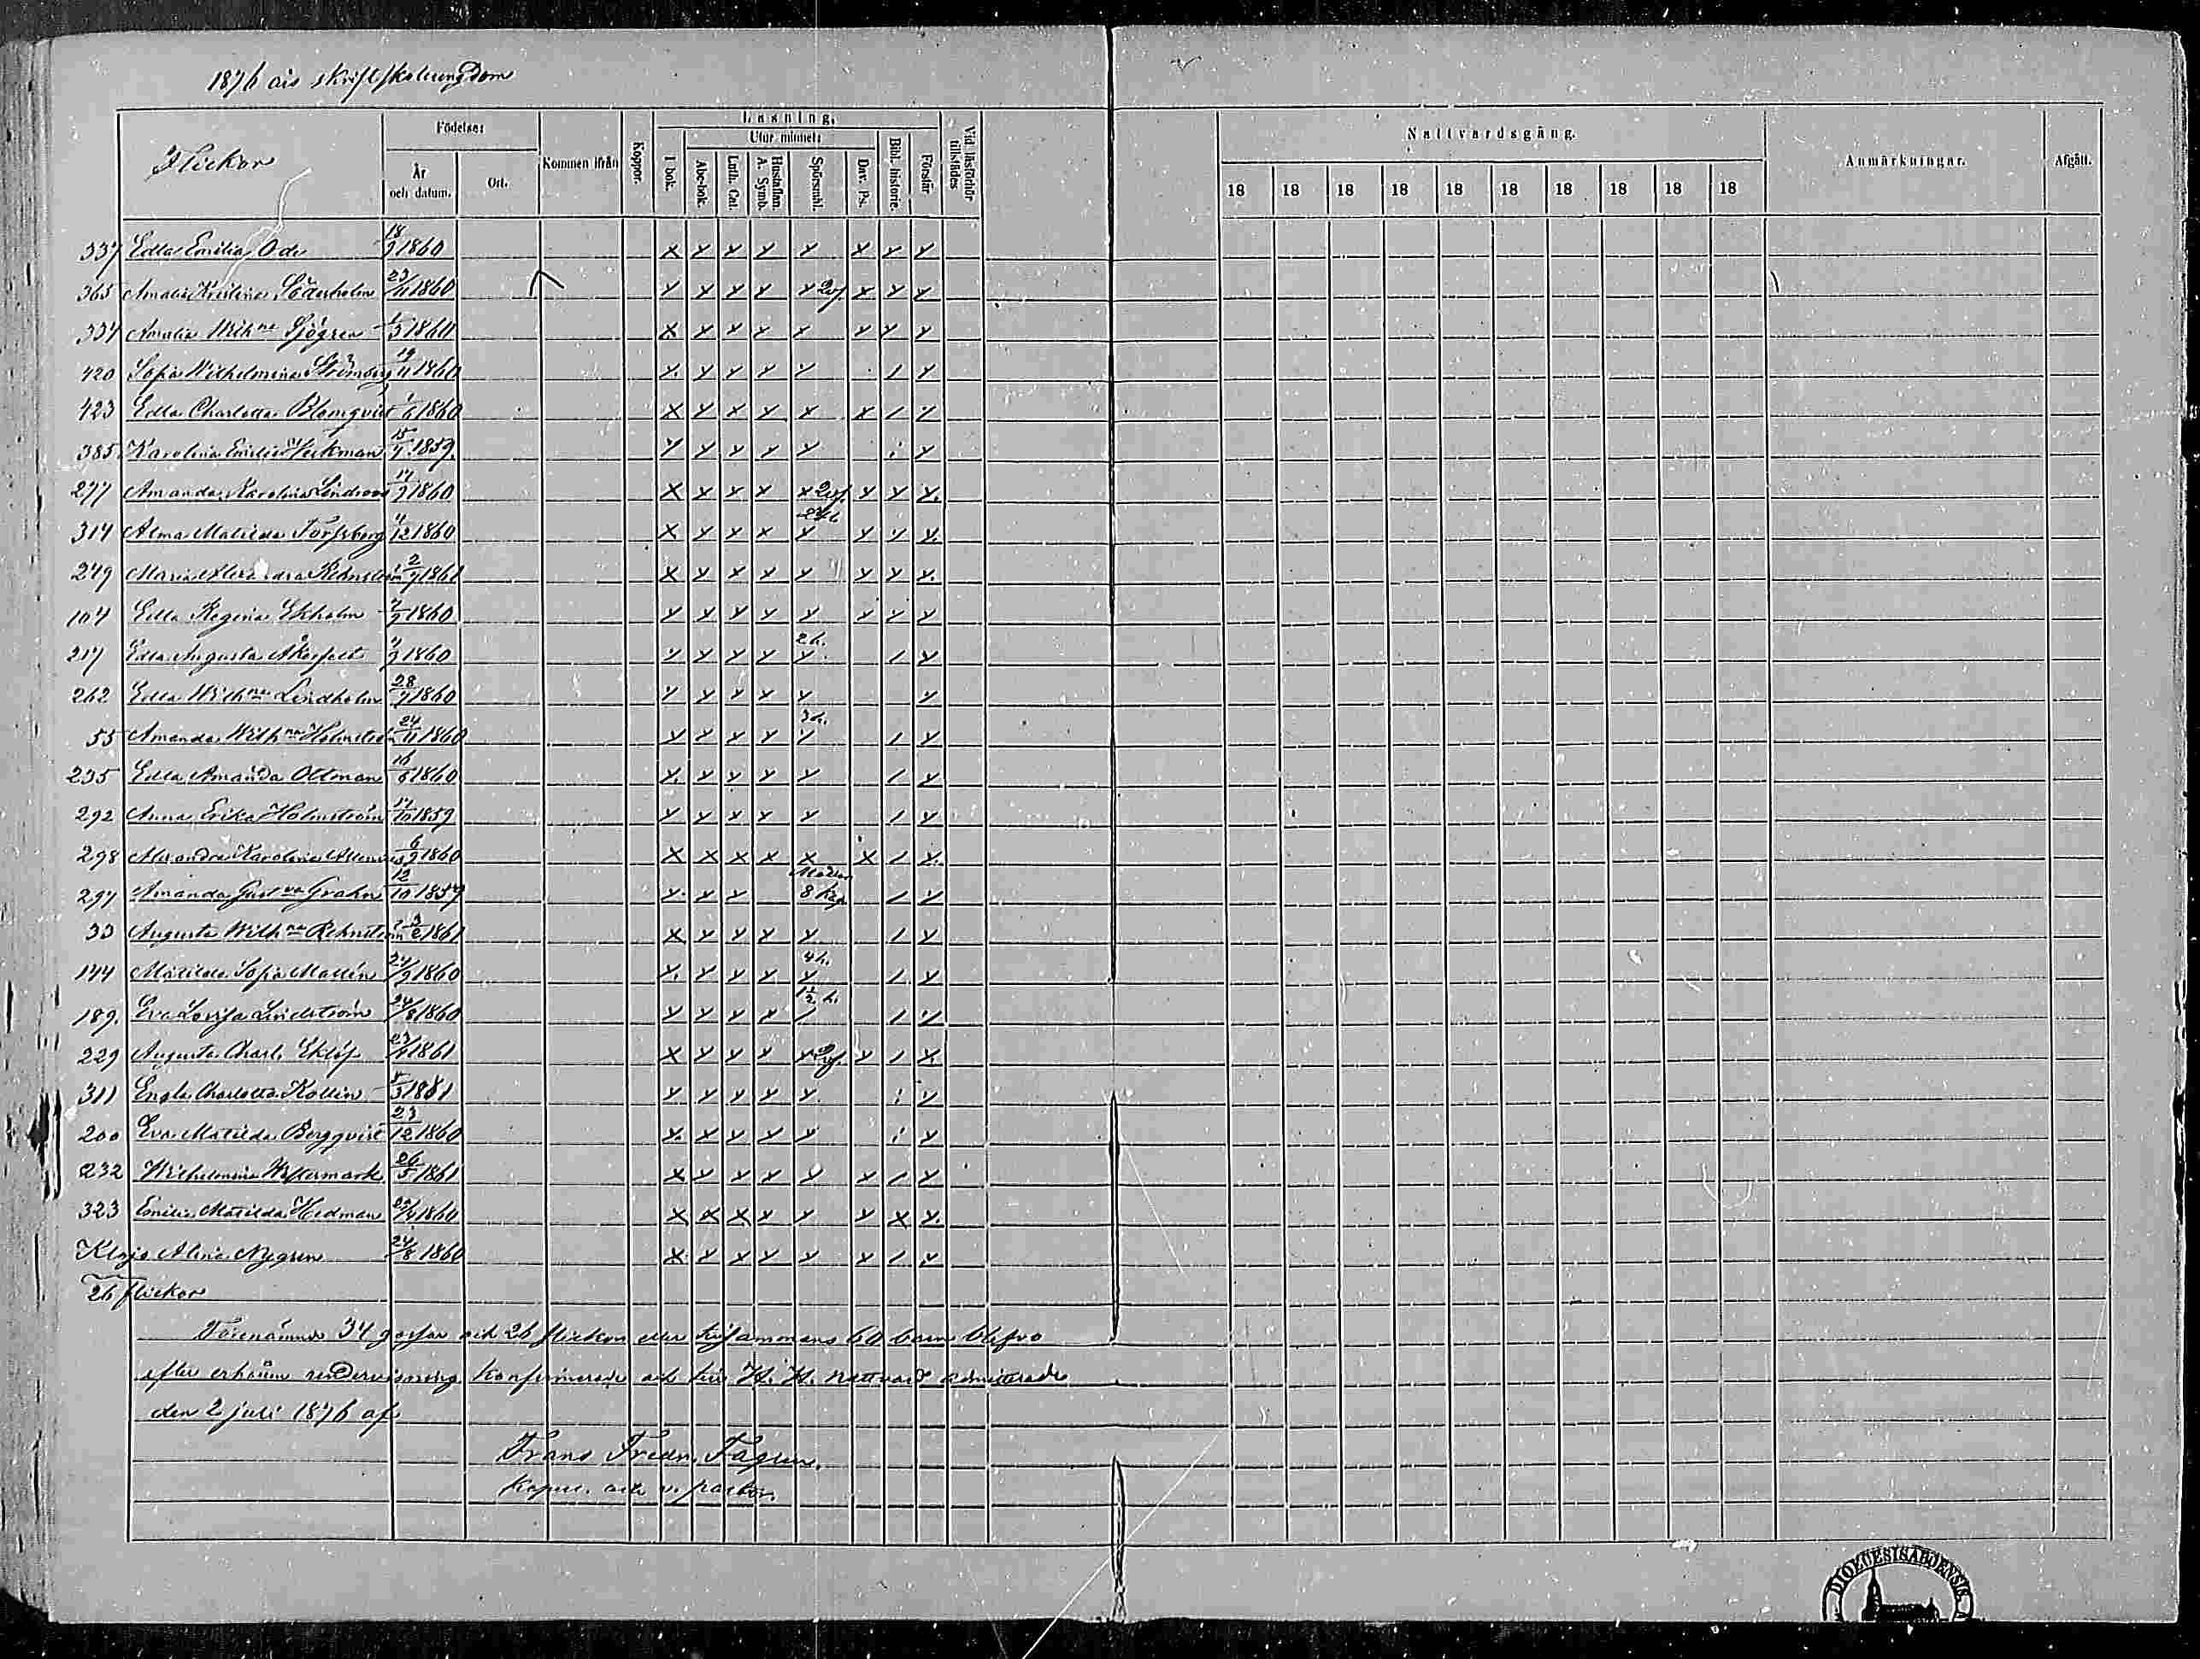 1876 års skriftskolungdom
Flickor
Födelse:
År och datum.
Ort.
Kommen ifrån
Koppor.
Läsning.
I bok.
Utur minnet:
Abc-bok.
Luth. Cat.
Hustaflan. A. Symb.
Spörsmål.
Dav. Ps.
Bibl. historie.
Förstår
Vid läsförhör tillstädes
Nattvardsgång.
18 18 18 18 18 18 18 18 18 18
Anmärkningar.
Afgått.
337 Edla Emilia Ode 18/9 1860 x x x x x x x x
365 Amalia Kristina Söderholm 23/11 1860 x x x x x x x x
334 Amalia Wilh:na Sjögren 1860 x x x x x x x x
420 Sofia Wilhelmina Strömberg 19/11 1860 x x x x x / x
423 Edla Charlotta Blomqvist 1/6 1860 x x x x x x / x
385. Karolina Emilia Heckman 1859. x x x x x x
277 Amanda Karolina Lindroos 17/9 1860 x x x x x x x x
314 Alma Matilda Forssberg 4/12 1860 x x x x x x x x
249 Maria Alexandra Rehnström 1861 x x x x x x x x
104 Edla Regina Ekholm 1860 x x x x x x x x
217 Edla Augusta Åkerfelt 1860 x x x x 2 h. x / x
262 Edla Wilh:na Lindholm 28/7 1860 x x x x x x
55 Amanda Wilh:na Holmström 24/11 1860 x x x x 3 h. x / x
235 Edla Amanda Ottman 16/6 1860 x x x x x / x
292 Anna Erika Holmström 17/10 1859 x x x x x / x
298 Alexandra Karolina 6/9 1860 x x x x x x / x
297 Amanda Gust:va Grahn 12/10 1859 x x x 8 kap / x
33 Augusta Wilh:na Rehnström 1861 x x x x x / x
144 Matilda Sofia Mallén 1860 x x x x 4 h. x / x
189. Eva Lovisa Lindström 24/8 1860 x x x x 1½ h. / / x
229 Augusta Charl. Eklöf 1861 x x x x x x / x
311 Engla Charlotta Kollin 1861 x x x x x x
200 Eva Matilda Bergqvist 23/12 1860 x x x x x x
232 Wilhelmina Westermark 26/5 1861 x x x x x x / x
323 Emilia Matilda Hedman 1860 x x x x x x x x
Alina Nygren 24/8 1860 x x x x x x / x
26 flickor
Förenämnde 34 gossar och 26 flickor eller tillsammans 60 barn blefvo
efter erhållen undervisning konfirmerade och till H. H. nattvard admitterade
den 2 juli 1876 af
Frans Fredr. Fagren.
kapell. och v. pastor.
DIOECESIS ABOENSIS